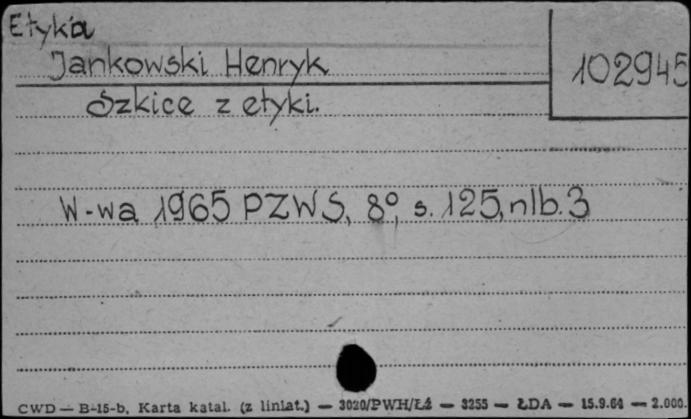 Etyka
Jankowski Henryk
102945
Szkice z etyki.
W-wa 1965 PZWS, 8º, s. 125, nlb. 3
CWD — B-15-b, Karta katal. (z liniat.) — 3020/PWH/Łź — 3255 — ŁDA — 15.9.64 — 2.000.